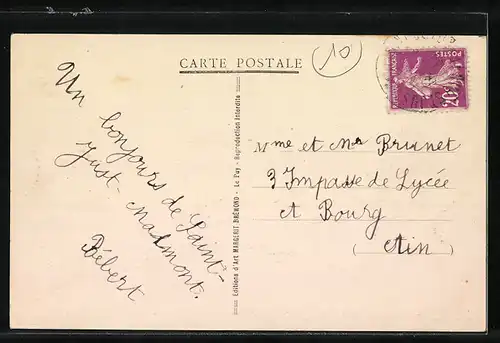 CARTE POSTALE
10
POSTES
REPUBLIQUE FRANÇAISE
20c
Un bonjours de Saint-
Just Malmont.
Bébert
Editions d'Art MARGERIT-BRÉMOND - Le Puy - Reproduction Interdite
Mme et Mr Brunet
3 Impasse de Lycée
et Bourg
(Ain)